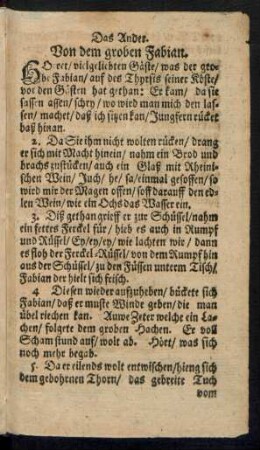 Das Ander.
Von dem groben Fabian.
HOret/ vielgeliebten Gäste/ was der gro-
be Fabian/ auf des Thyrsis seiner Köste/
vor den Gästen hat gethan: Er kam/ da sie
sassen assen/ schry/ wo wird man mich den las-
sen/ machet/ daß ich sitzen kan/ Jungfern rücket
baß hinan.
2. Da Sie ihm nicht wolten rücken/ drang
er sich mit Macht hinein/ nahm ein Brod und
brachs zustücken/ auch ein Glaß mit Rheini-
schen Wein/ Juch/ he/ sa/ einmal gesoffen/ so
wird mir der Magen offen/ soff darauff den ed-
len Wein/ wie ein Ochs das Wasser ein.
3. Diß gethan grieff er zur Schüssel/ nahm
ein fettes Ferckel für/ hieb es auch in Rumpf
und Rüssel/ Ey/ ey/ ey/ wie lachten wir/ dann
es floh der Ferckel-Rüssel/ von dem Rumpf hin
aus der Schüssel/ zu den Füssen unterm Tisch/
Fabian der hielt sich frisch.
4 Diesen wieder aufzuheben/ bückete sich
Fabian/ daß er muste Winde geben/ die man
übel riechen kan. Auwe Zeter welche ein La-
chen/ folgete dem groben Hachen. Er voll
Scham stund auf/ wolt ab. Hört/ was sich
noch mehr begab.
5. Da er eilends wolt entwischen/ hieng sich
dem gebohrnen Thorn/ das gebreite Tuch
vom